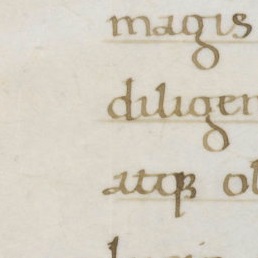 magis
diligen
atqꝫ ol